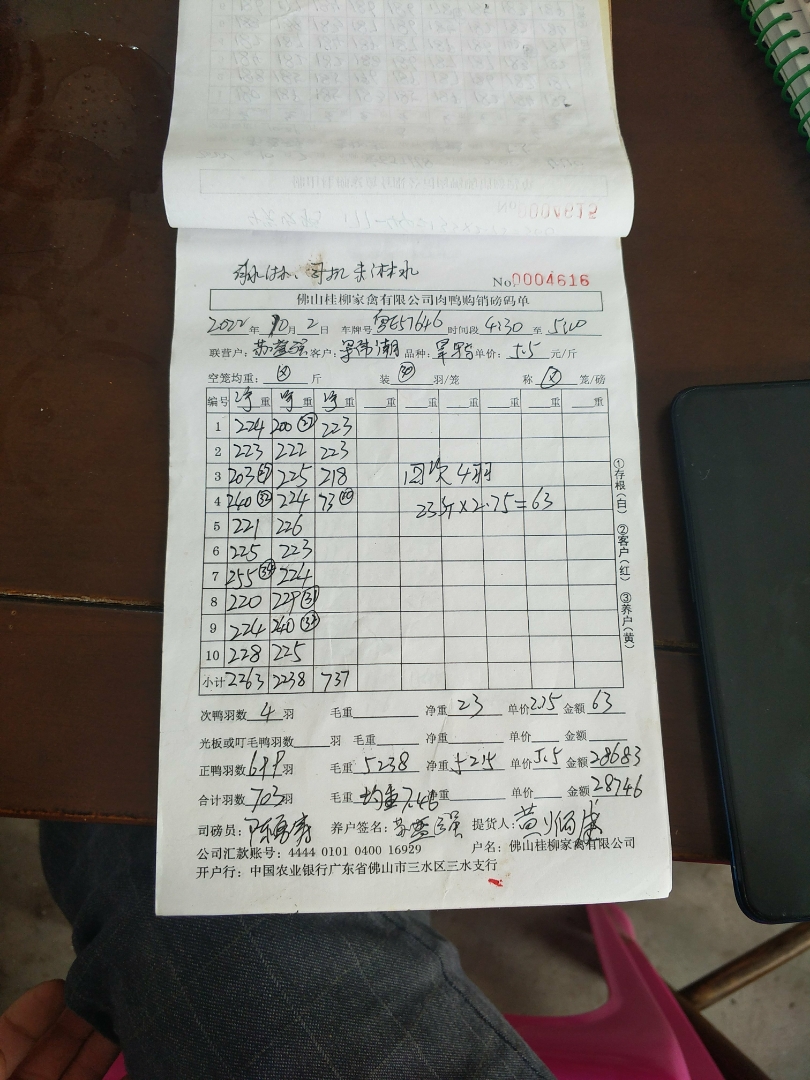 No. 0004615
No. 0004616
佛山桂柳家禽有限公司肉鸭购销磅码单
2022年 10月 2日 车牌号 粤E57646 时间段 4:30 至 5:00
联营户: 客户: 品种: 单价: 5.5 元/斤
空笼均重: 斤 装 羽/笼 称 笼/磅
编号 净重 净重 净重 重 重 重 重 重 重
1 224 200 (27) 223
2 223 222 223
3 203 (27) 225 218 回次4羽
4 240 (32) 224 73 23斤×2.75=63
5 221 226
6 225 223
7 255 (34) 224
8 220 229 (31)
9 224 240 (32)
10 228 225
小计 2263 2238 737
①存根(白) ②客户(红) ③养户(黄)
次鸭羽数 4 羽 毛重 净重 23 单价 2.75 金额 63
光板或叮毛鸭羽数 羽 毛重 净重 单价 金额
正鸭羽数 699 羽 毛重 5238 净重 5215 单价 5.5 金额 28683
合计羽数 703 羽 毛重 均重7.46 净重 单价 金额 28746
司磅员: 养户签名: 提货人:
公司汇款账号: 4444 0101 0400 16929 户名: 佛山桂柳家禽有限公司
开户行: 中国农业银行广东省佛山市三水区三水支行